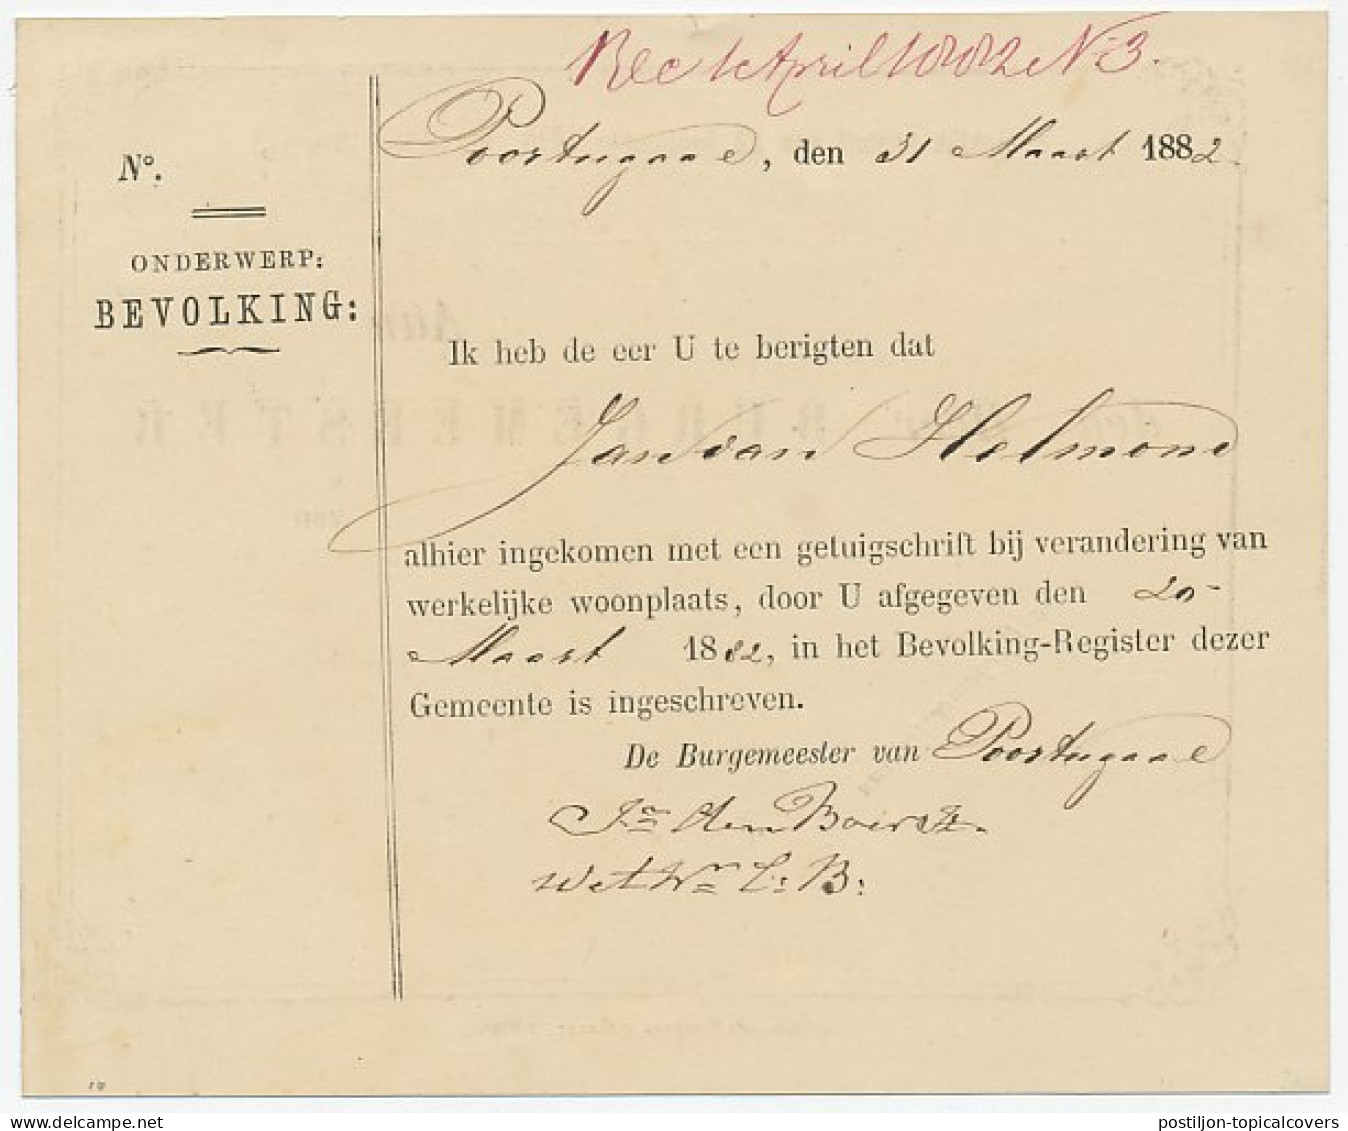 Rec 1e April 1882 N 3.
Poortugaal, den 31 Maart 1882.
No.
ONDERWERP:
BEVOLKING:
Ik heb de eer U te berigten dat
Jan van Helmond
alhier ingekomen met een getuigschrift bij verandering van
werkelijke woonplaats, door U afgegeven den 20
Maart 1882, in het Bevolking-Register dezer
Gemeente is ingeschreven.
De Burgemeester van Poortugaal
Jn den Boer
Wethr L: B:
postiljon-topicalcovers